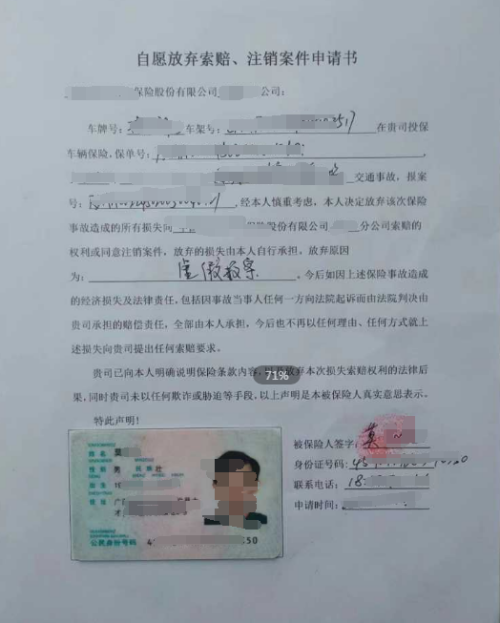 自愿放弃索赔、注销案件申请书
保险股份有限公司 公司：
车牌号： 车架号： 2517 在贵司投保
车辆保险，保单号： ，
交通事故，报案
号： ，经本人慎重考虑，本人决定放弃该次保险
事故造成的所有损失向 股份有限公司 分公司索赔的
权利或同意注销案件，放弃的损失由本人自行承担，放弃原因
为： 虚假报案 。今后如因上述保险事故造成
的经济损失及法律责任，包括因事故当事人任何一方向法院起诉而由法院判决由
贵司承担的赔偿责任，全部由本人承担，今后也不再以任何理由、任何方式就上
述损失向贵司提出任何索赔要求。
贵司已向本人明确说明保险条款内容， 放弃本次损失索赔权利的法律后
71%
果，同时贵司未以任何欺诈或胁迫等手段，以上声明是本被保险人真实意思表示。
特此声明！
被保险人签字： 莫
身份证号码：
联系电话： 18
申请时间：
姓名 莫
性别 男 民族 壮
出生
住址 广
公民身份号码 4 50